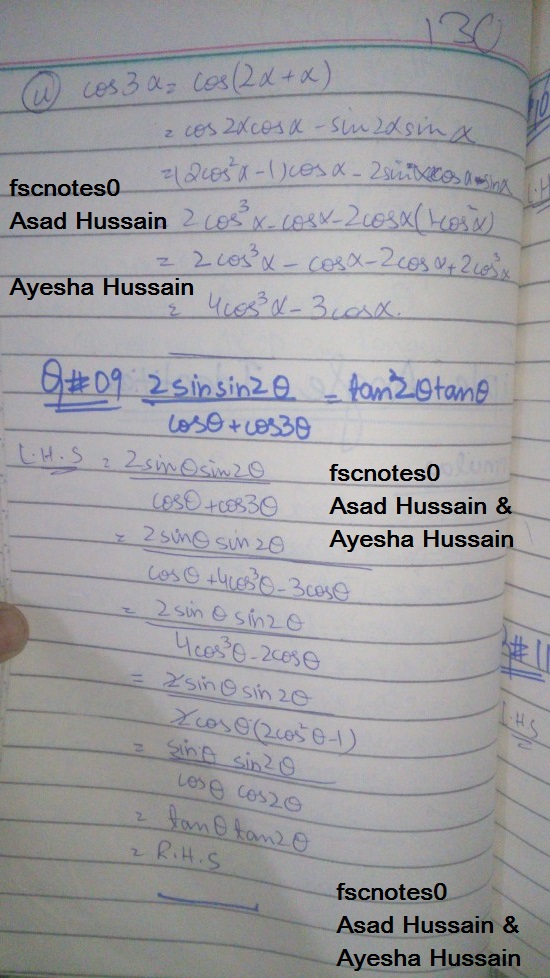 130
(ii) cos3α = cos(2α+α)
= cos2αcosα - sin2αsinα
=(2cos²α-1)cosα - 2sinαcosα·sinα
fscnotes0
Asad Hussain
2cos³α-cosα-2cosα(1-cos²α)
= 2cos³α - cosα-2cosα+2cos³α
Ayesha Hussain
= 4cos³α-3cosα.
Q#09 2sinsin2θ / cosθ+cos3θ = tan2θtanθ
L.H.S = 2sinθsin2θ / cosθ+cos3θ
fscnotes0
Asad Hussain &
Ayesha Hussain
= 2sinθsin2θ / cosθ+4cos³θ-3cosθ
= 2sinθsin2θ / 4cos³θ-2cosθ
= 2sinθsin2θ / 2cosθ(2cos²θ-1)
= sinθ sin2θ / cosθ cos2θ
= tanθtan2θ
= R.H.S
#11
L.HS
fscnotes0
Asad Hussain &
Ayesha Hussain